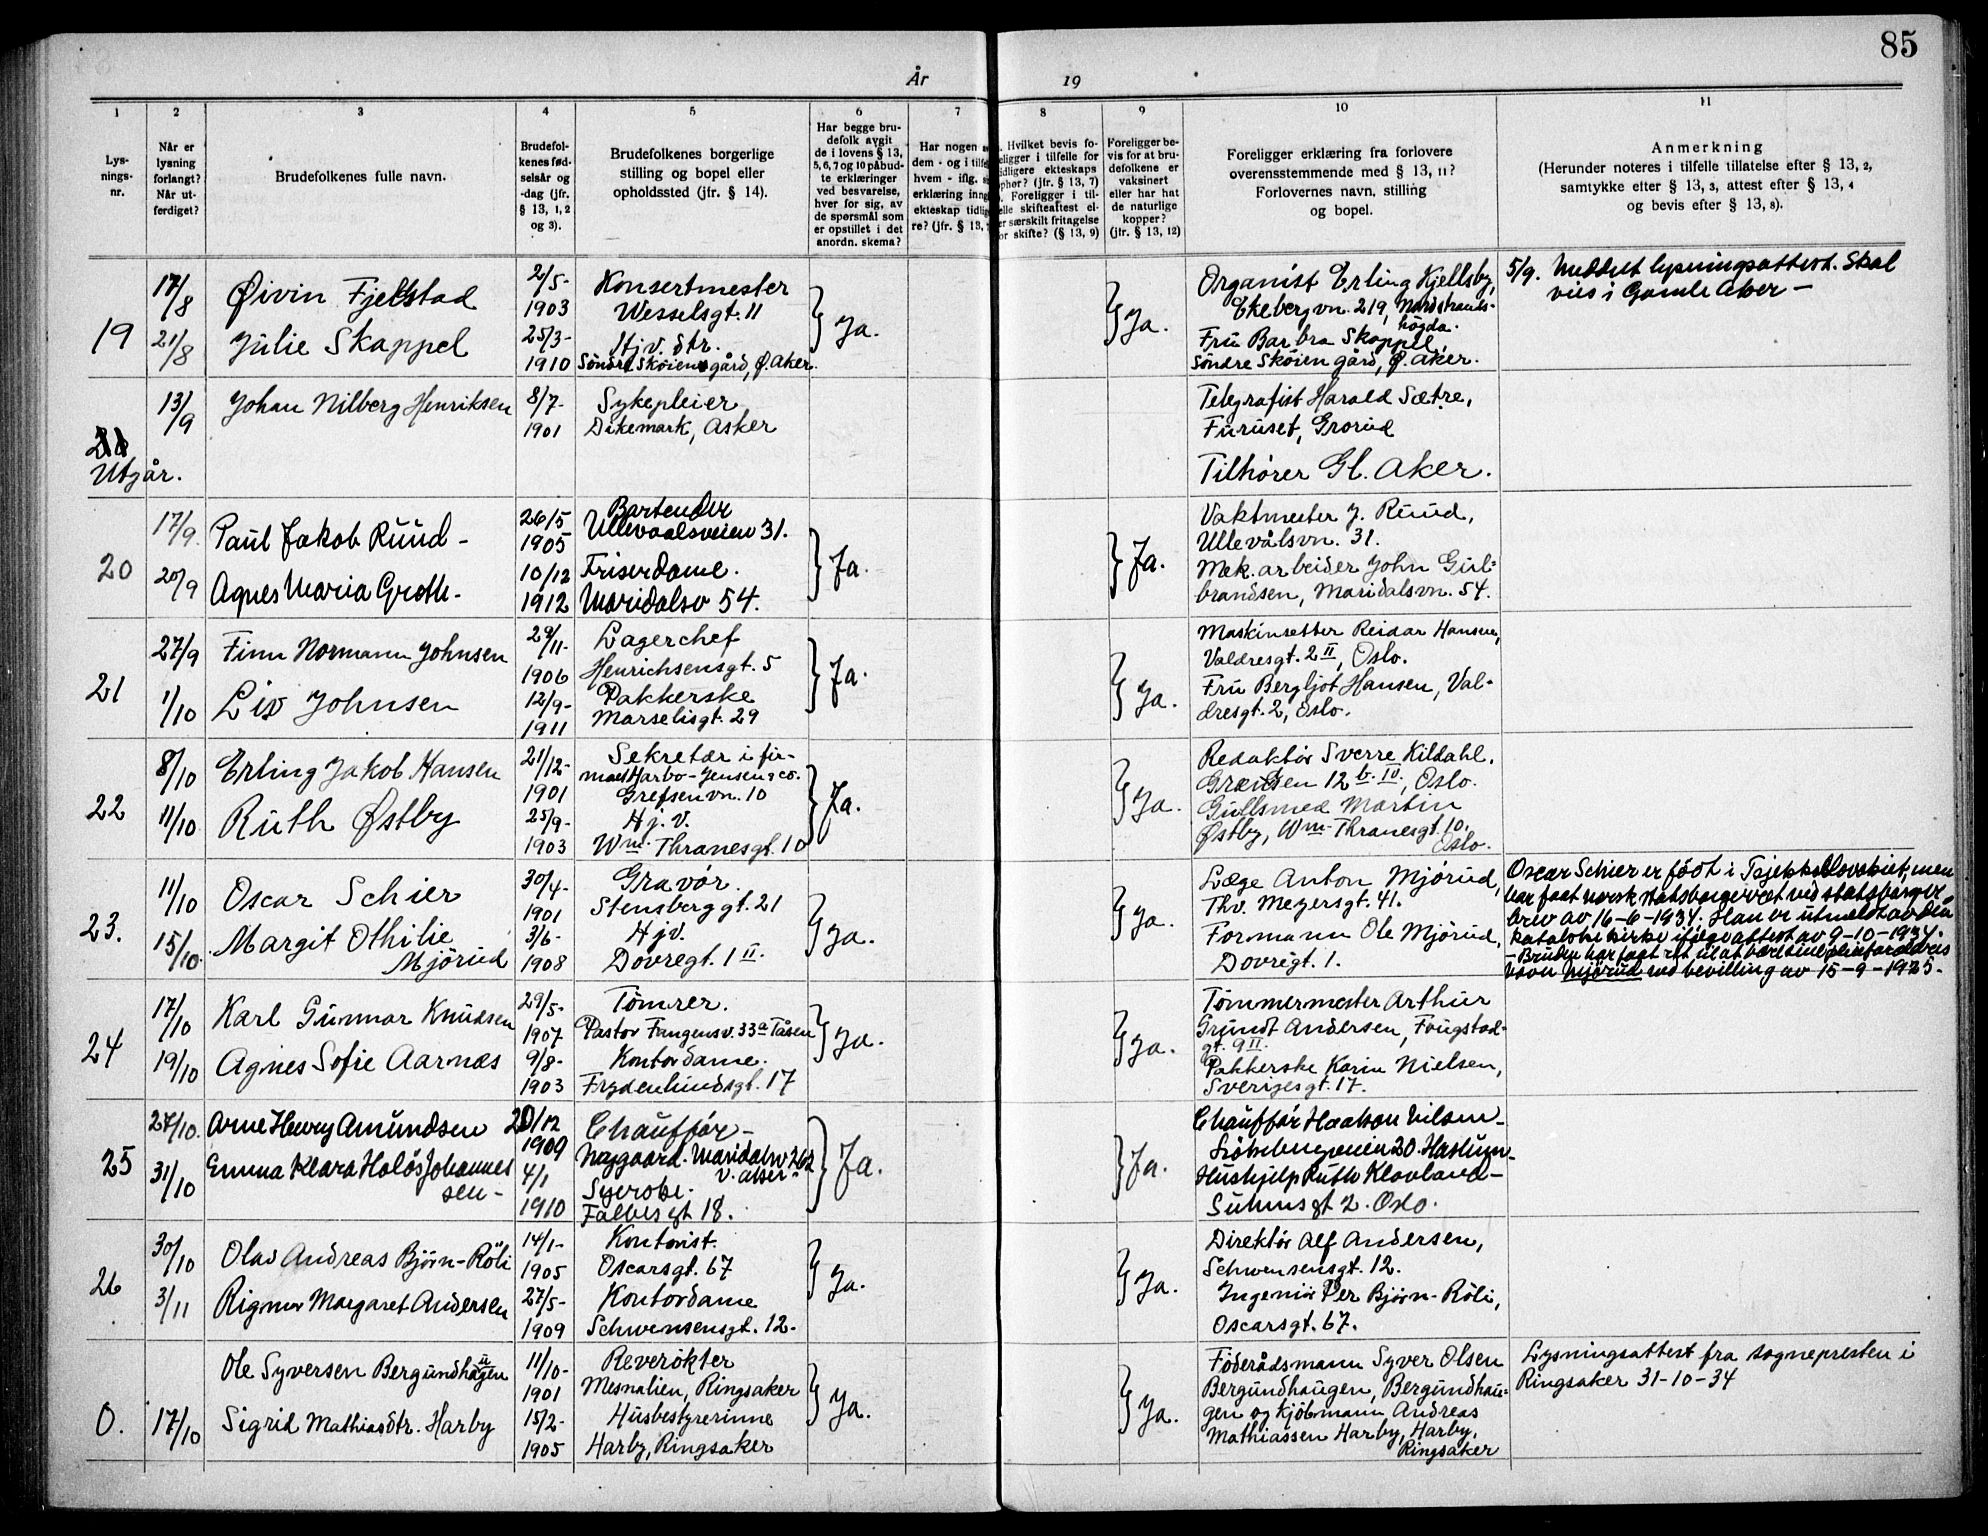 85
År 19
1 2 3 4 5 6 7 8 9 10 11
Lysnings-nr.
Når er lysning forlangt? Når utferdiget?
Brudefolkenes fulle navn.
Brudefolkenes fødselsår og -dag (jfr. § 13, 1, 2 og 3).
Brudefolkenes borgerlige stilling og bopel eller opholdssted (jfr. § 14).
Har begge brudefolk avgit de i lovens § 13, 5, 6, 7 og 10 påbudte erklæringer ved besvarelse, hver for sig, av de spørsmål som er opstillet i det anordn. skema?
Har nogen
dem - og i tilfe
hvem - iflg.
erklæring inng
ekteskap tidlig
re? (jfr. § 13,
Hvilket bevis fo-
religger i tilfelle for
tidligere ekteskaps
ophør? (jfr. § 13, 7)
Foreligger i til-
elle skifteattest el-
er særskilt fritagelse
or skifte? (§ 13, 9)
Foreligger bevis for at brudefolkene er vaksinert eller har hat de naturlige kopper? (jfr. § 13, 12)
Foreligger erklæring fra forlovere overensstemmende med § 13, 11? Forlovernes navn, stilling og bopel.
Anmerkning
(Herunder noteres i tilfelle tillatelse efter § 13, 2,
samtykke efter § 13, 3, attest efter § 13, 4
og bevis efter § 13, 8).
19
17/8
21/8
Øivin Fjeldstad
Julie Skappel
2/5-
1903
25/3-
1910
Konsertmester
Wesselsgt. 11
Hjv. dtr.
Söndre Skøien gård, Ø. Aker.
Ja.
Ja.
Organist Erling Kjellsby,
Ekebergvn. 219, Nordstrands-
høgda.
Fru Barbra Skappel,
Söndre Skøien gård, Ø. Aker.
5/9. Meddelt lysningsattest. Skal
vies i Gamle Aker -
Utgår.
13/9
Johan Nilberg Henriksen
8/7-
1901
Sykepleier
Dikemark, Asker
Telegrafist Harald Sætre,
Furuset, Grorud
Tilhører Gl. Aker.
20
17/9.
20/9
Paul Jakob Ruud -
Agnes Maria Groth-
26/5
1905
10/12
1912
Bartender
Ullevaalsveien 31.
Friserdame.
Maridalsv 54.
Ja.
Ja.
Vaktmester J. Ruud,
Ullevålsvn. 31.
Mek. arbeider John Gul-
brandsen, Maridalsvn. 54.
21
27/9
1/10
Finn Normann Johnsen
Liv Johnsen
29/11-
1906
12/9-
1911
Lagerchef
Henrichsensgt. 5
Pakkerske
Marselisgt. 29
Ja.
Ja.
Maskinsetter Reidar Hansen,
Valdresgt. 2 II, Oslo.
Fru Bergljot Hansen, Val-
dresgt. 2, Oslo.
22
8/10
11/10
Erling Jakob Hansen
Ruth Østby
21/12-
1901
25/9-
1903
Sekretær i fir-
maet Harbo-Jensen & co.
Grefsenvn. 10
Hj. v.
Wm. Thranesgt. 10
Ja.
Ja.
Redaktør Sverre Kildahl.
Grensen 12 b. IV, Oslo.
Gullsmed Martin
Østby, Wm. Thranesgt. 10.
Oslo.
23.
11/10
15/10
Oscar Schier
Margit Othilie
Mjörud
30/4-
1901
3/6-
1908
Gravør.
Stensberggt. 21
Hjv.
Dovregt. 1 II.
Ja.
Ja.
Læge Anton Mjørud,
Thv. Meyersgt. 41.
Formann Ole Mjørud,
Dovregt. 1.
Oscar Schier er födt i Tsjekkoslovakiet, men
har faat norsk statsborgerret ved statsborger-
brev av 16-6-1934. Han er utmeldt av den
katolske kirke ifølge attest av 9-10-1934.
- Bruden har faat ret til at bære sine pleieforældres
navn Mjørud ved bevilling av 15-9-1925.
24
17/10
19/10
Karl Gunnar Knudsen
Agnes Sofie Aarnæs
29/5-
1907
9/8-
1903
Tømrer.
Pastor Fangensv. 33a Tåsen
Kontordame.
Frydenlundsgt. 17
Ja.
Ja.
Tømmermester Arthur
Grundt Andersen, Fougstad-
gt. 9 II.
Pakkerske Karin Nielsen,
Sverigesgt. 17.
25
27/10.
31/10
Arne Henry Amundsen
Emma Klara Holös Johannes
sen-
20/12
1909
4/1
1910
Chauffør -
Nygaard. Maridalsv 262
V. Aker.
Syerske.
Falbesgt 18.
Ja.
Ja.
Chauffør Haakon Nilsen-
20. Haslum-
Hushjelp Ruth Klovland-
Suhmsgt 2. Oslo.
26
30/10
3/11
Olav Andreas Bjørn-Röli
Rigmor Margaret Andersen
14/1-
1905
27/5-
1909
Kontorist.
Oscarsgt. 67
Kontordame
Schwensensgt. 12-
Ja.
Ja.
Direktør Alf Andersen,
Schwensensgt. 12.
Ingeniør Per Bjørn-Röli,
Oscarsgt. 67.
0.
17/10
Ole Syversen Bergundhaugen
Sigrid Mathiasdtr. Harby
11/10-
1901
15/2-
1905
Reverøkter
Mesnalien, Ringsaker
Husbestyrerinne
Harby, Ringsaker
Ja.
Ja.
Föderådsmann Syver Olsen
Bergundhaugen, Bergundhau-
gen og kjøbmann Andreas
Mathiassen Harby, Harby,
Ringsaker
Lysningsattest fra sognepresten i
Ringsaker 31-10-34